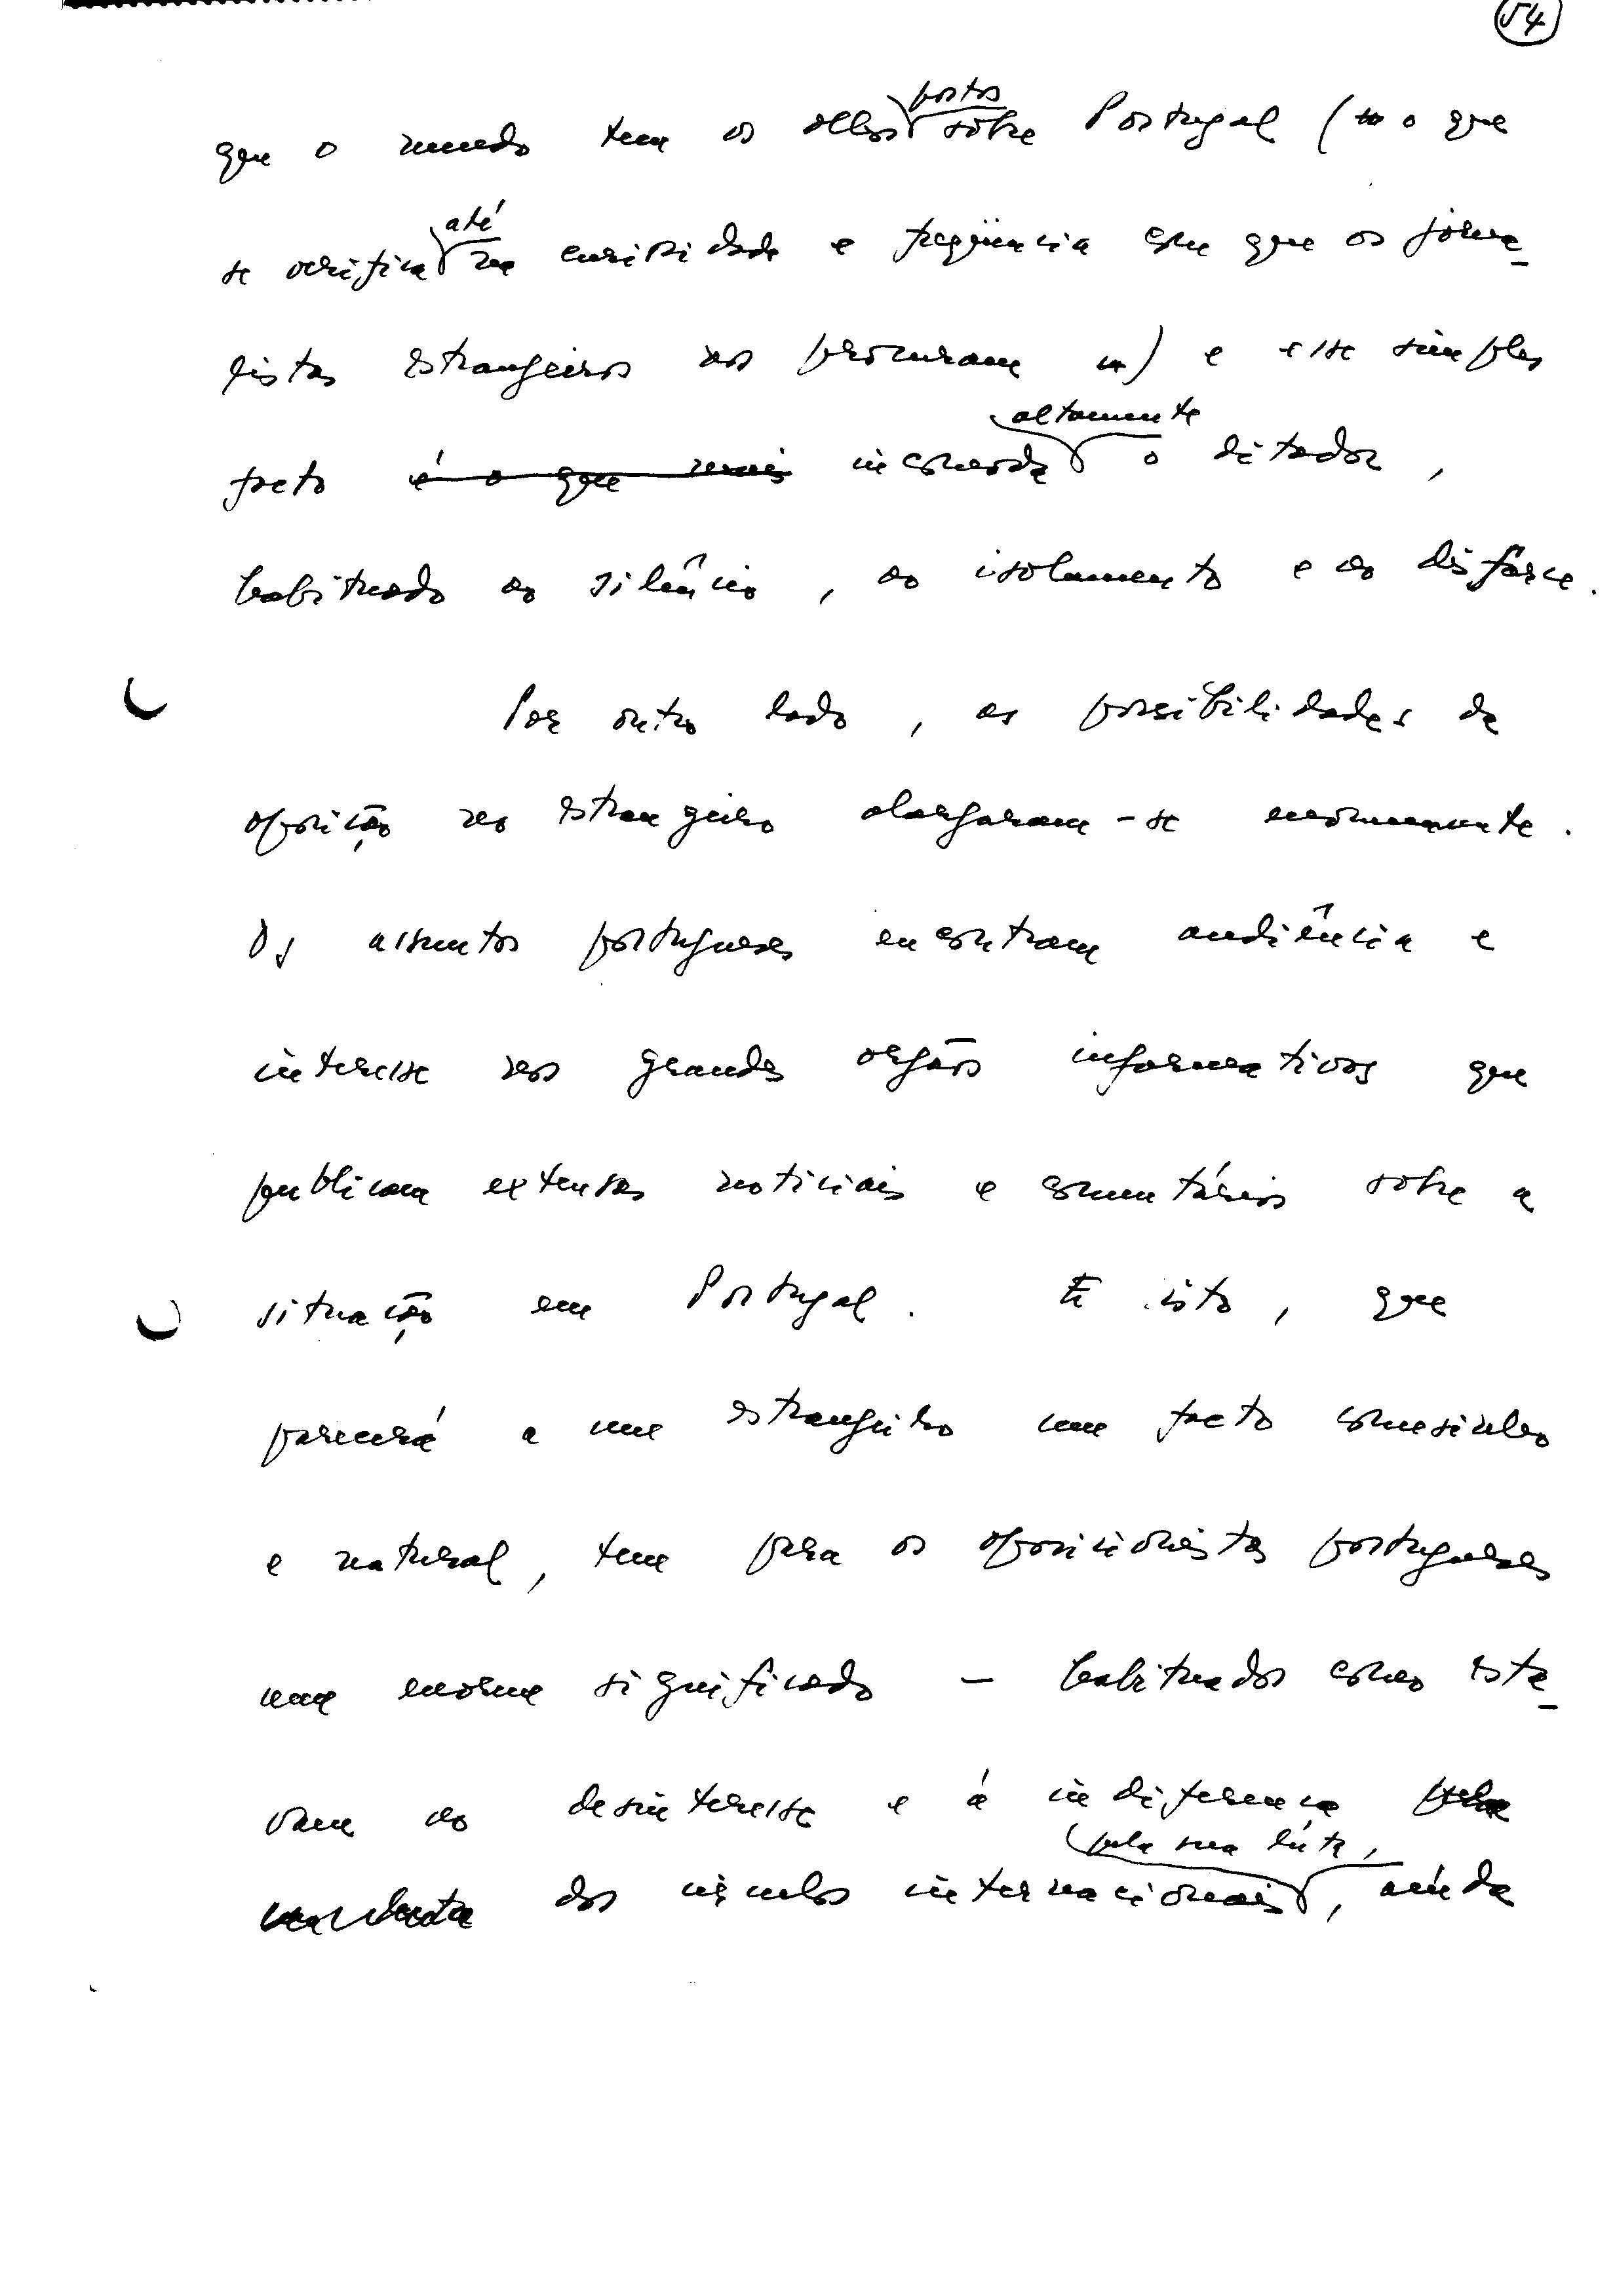 54
que o mundo tem os olhos postos sôbre Portugal (o que
se verifica até na curiosidade e freqüencia com que os jorna-
listas estrangeiros nos procuram) e esse simples
facto é o que mais incomoda altamente o ditador,
habituado ao silêncio, ao isolamento e ao disfarce.
Por outro lado, as possibilidades da
oposição no estrangeiro alargaram-se enormemente.
Os assuntos portugueses encontram audiência e
interesse nos grandes orgãos informativos que
publicam extensas noticiais e comentários sobre a
situação em Portugal. E isto, que
parecerá a um estrangeiro um facto comesinho
e natural, tem para os oposicionistas portugueses
um enorme significado – habituados como esta-
vam ao desinteresse e á indiferença pela
sua luta dos círculos internacionais pela sua luta, ainda